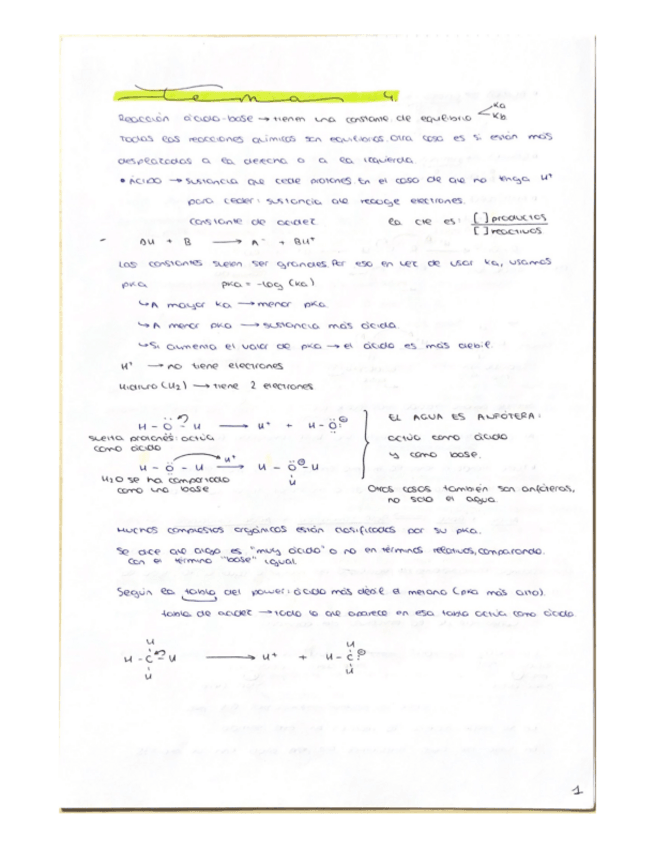 Tema 4.
Reacción ácido-base → tienen una constante de equilibrio < Ka
KB
Todas las reacciones químicas son equilibrios. Otra cosa es si están más
desplazadas a la derecha o a la izquierda.
• ÁCIDO → sustancia que cede protones. En el caso de que no tenga H⁺
para ceder: sustancia que recoge electrones.
constante de acidez. la cte es: [ ] productos
[ ] reactivos
- AH + B ⟶ A⁻ + BH⁺
Las constantes suelen ser grandes. Por eso en vez de usar ka, usamos
pka pka = -log (ka)
↳ A mayor ka → menor pka.
↳ A menor pka → sustancia más ácida.
↳ Si aumenta el valor de pka → el ácido es más débil.
H⁺ → no tiene electrones
Hidruro (H₂) → tiene 2 electrones
H - Ö - H ⟶ H⁺ + H - Ö:⊖
suelta protones: actúa
como ácido
H - Ö - H H⁺ ⟶ H - Ö⊕ - H
H
H₂O se ha comportado
como una base
EL AGUA ES ANFÓTERA:
actúa como ácido
y como base.
Otros casos también son anfóteros,
no solo el agua.
Muchos compuestos orgánicos están clasificados por su pka.
Se dice que algo es "muy ácido" o no en términos relativos, comparando.
Con el término "base" igual
Según la tabla del power: ácido más débil el metano (pka más alto).
tabla de acidez → todo lo que aparece en esa tabla actúa como ácido.
H H
H - C - H ⟶ H⁺ + H - C:⊖
H H
1